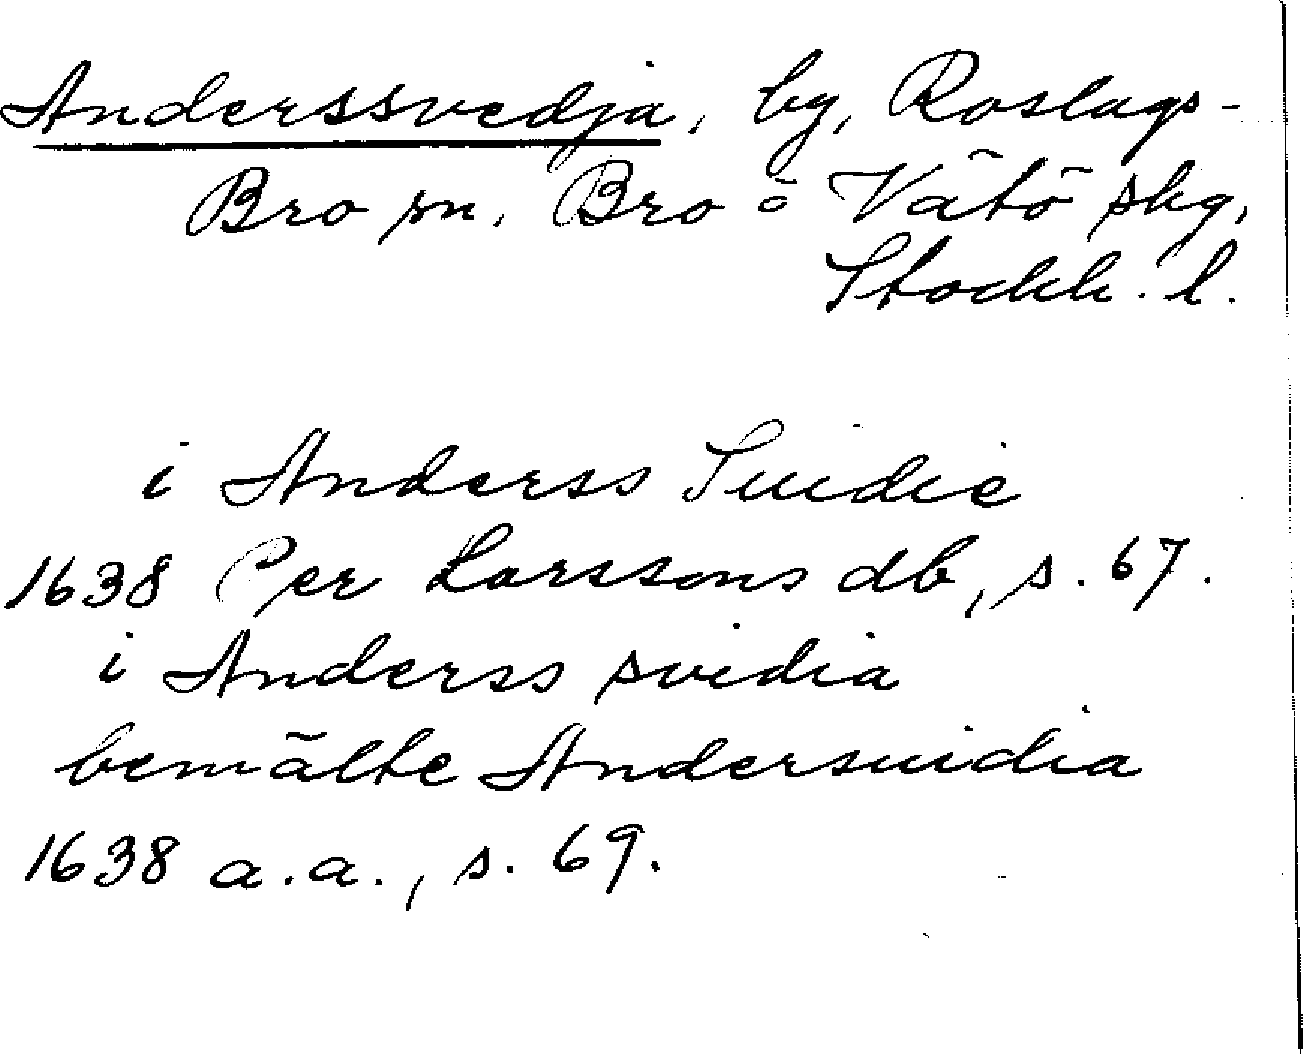 Anderssvedja, by, Roslags-
Bro sn, Bro o Vätö skg,
Stockh. l.
i Anderss Suidie
1638 Per Larssons db, s. 67.
i Anderss svidia
bemälte Andersuidia
1638 a.a., s. 69.